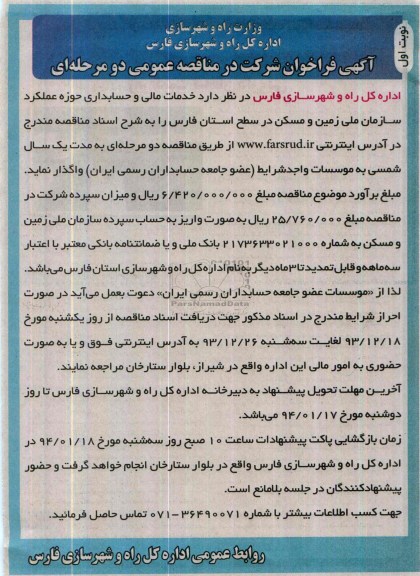 وزارت راه و شهرسازی
اداره کل راه و شهرسازی فارس
نوبت اول
آگهی فراخوان شرکت در مناقصه عمومی دو مرحله‌ای
اداره کل راه و شهرسازی فارس در نظر دارد خدمات مالی و حسابداری حوزه عملکرد
سازمان ملی زمین و مسکن در سطح استان فارس را به شرح اسناد مناقصه مندرج
در آدرس اینترنتی www.farsrud.ir از طریق مناقصه دو مرحله‌ای به مدت یک سال
شمسی به موسسات واجدشرایط (عضو جامعه حسابداران رسمی ایران) واگذار نماید.
مبلغ برآورد موضوع مناقصه مبلغ ۶/۴۲۰/۰۰۰/۰۰۰ ریال و میزان سپرده شرکت در
مناقصه مبلغ ۲۵/۷۶۰/۰۰۰ ریال به صورت واریز به حساب سپرده سازمان ملی زمین
و مسکن به شماره ۲۱۷۳۶۳۳۰۲۱۰۰۰ بانک ملی و یا ضمانتنامه بانکی معتبر با اعتبار
سه‌ماهه و قابل تمدید تا ۳ماه دیگر به‌نام اداره کل راه و شهرسازی استان فارس می‌باشد.
لذا از «موسسات عضو جامعه حسابداران رسمی ایران» دعوت بعمل می‌آید در صورت
احراز شرایط مندرج در اسناد مذکور جهت دریافت اسناد مناقصه از روز یکشنبه مورخ
۹۳/۱۲/۱۸ لغایت سه‌شنبه ۹۳/۱۲/۲۶ به آدرس اینترنتی فوق و یا به صورت
حضوری به امور مالی این اداره واقع در شیراز، بلوار ستارخان مراجعه نمایند.
آخرین مهلت تحویل پیشنهاد به دبیرخانه اداره کل راه و شهرسازی فارس تا روز
دوشنبه مورخ ۹۴/۰۱/۱۷ می‌باشد.
زمان بازگشایی پاکت پیشنهادات ساعت ۱۰ صبح روز سه‌شنبه مورخ ۹۴/۰۱/۱۸ در
اداره کل راه و شهرسازی فارس واقع در بلوار ستارخان انجام خواهد گرفت و حضور
پیشنهادکنندگان در جلسه بلامانع است.
جهت کسب اطلاعات بیشتر با شماره ۳۶۴۹۰۰۷۱-۰۷۱ تماس حاصل فرمائید.
روابط عمومی اداره کل راه و شهرسازی فارس
ParsNamadData